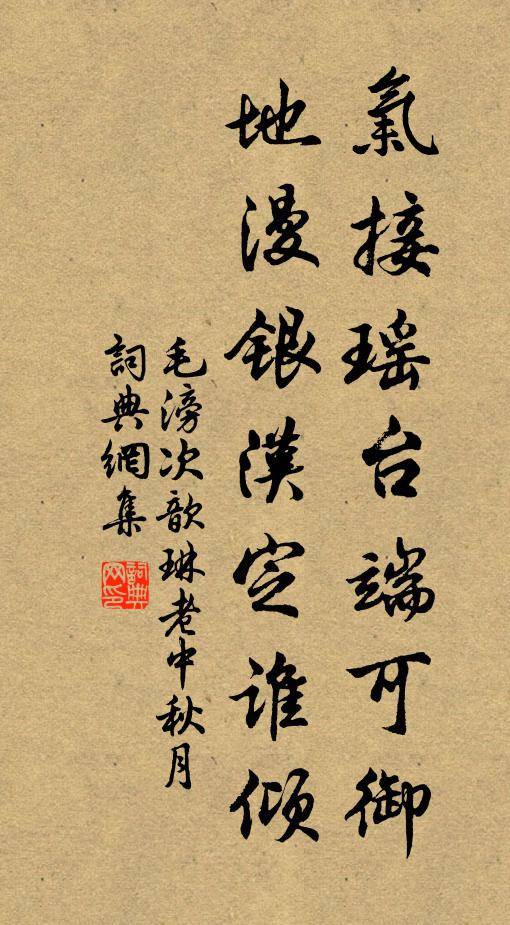 氣接瑶台端可御
地漫銀漢定誰傾
毛滂次韻琳老中秋月
詞典網集
詞典网印